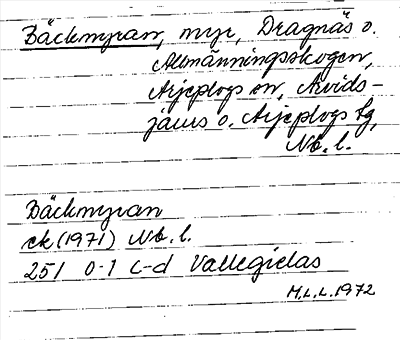 Bäckmyran, myr, Dragnäs o.
Allmänningsskogen,
Arjeplogs sn, Arvids-
jaurs o. Arjeplogs tg,
Nb. l.
Bäckmyran
ek (1971) Nb. l.
25 I 0-1 c-d Vallegielas
M.L.L. 1972